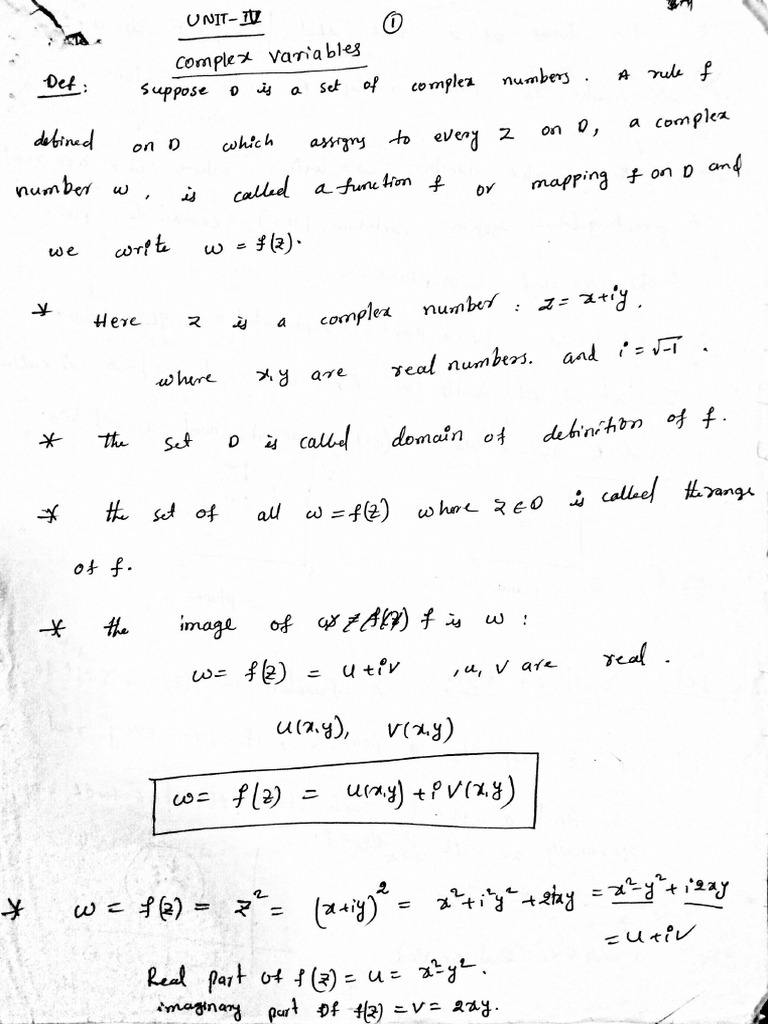 UNIT-IV
①
Complex Variables
Def: Suppose D is a set of complex numbers. A rule f
defined on D which assigns to every z on D, a complex
number w, is called a function f or mapping f on D and
we write w = f(z).
* Here z is a complex number: z = x+iy.
where x,y are real numbers. and i = √-1.
* the set D is called domain of definition of f.
* the set of all w = f(z) where z ∈ D is called the range
of f.
* the image of f is w:
w = f(z) = u+iv, u, v are real.
u(x,y), v(x,y)
w = f(z) = u(x,y) + i v(x,y)
* w = f(z) = z² = (x+iy)² = x²+i²y²+2ixy = x²-y²+i2xy
= u+iv
Real part of f(z) = u = x²-y².
imaginary part of f(z) = v = 2xy.